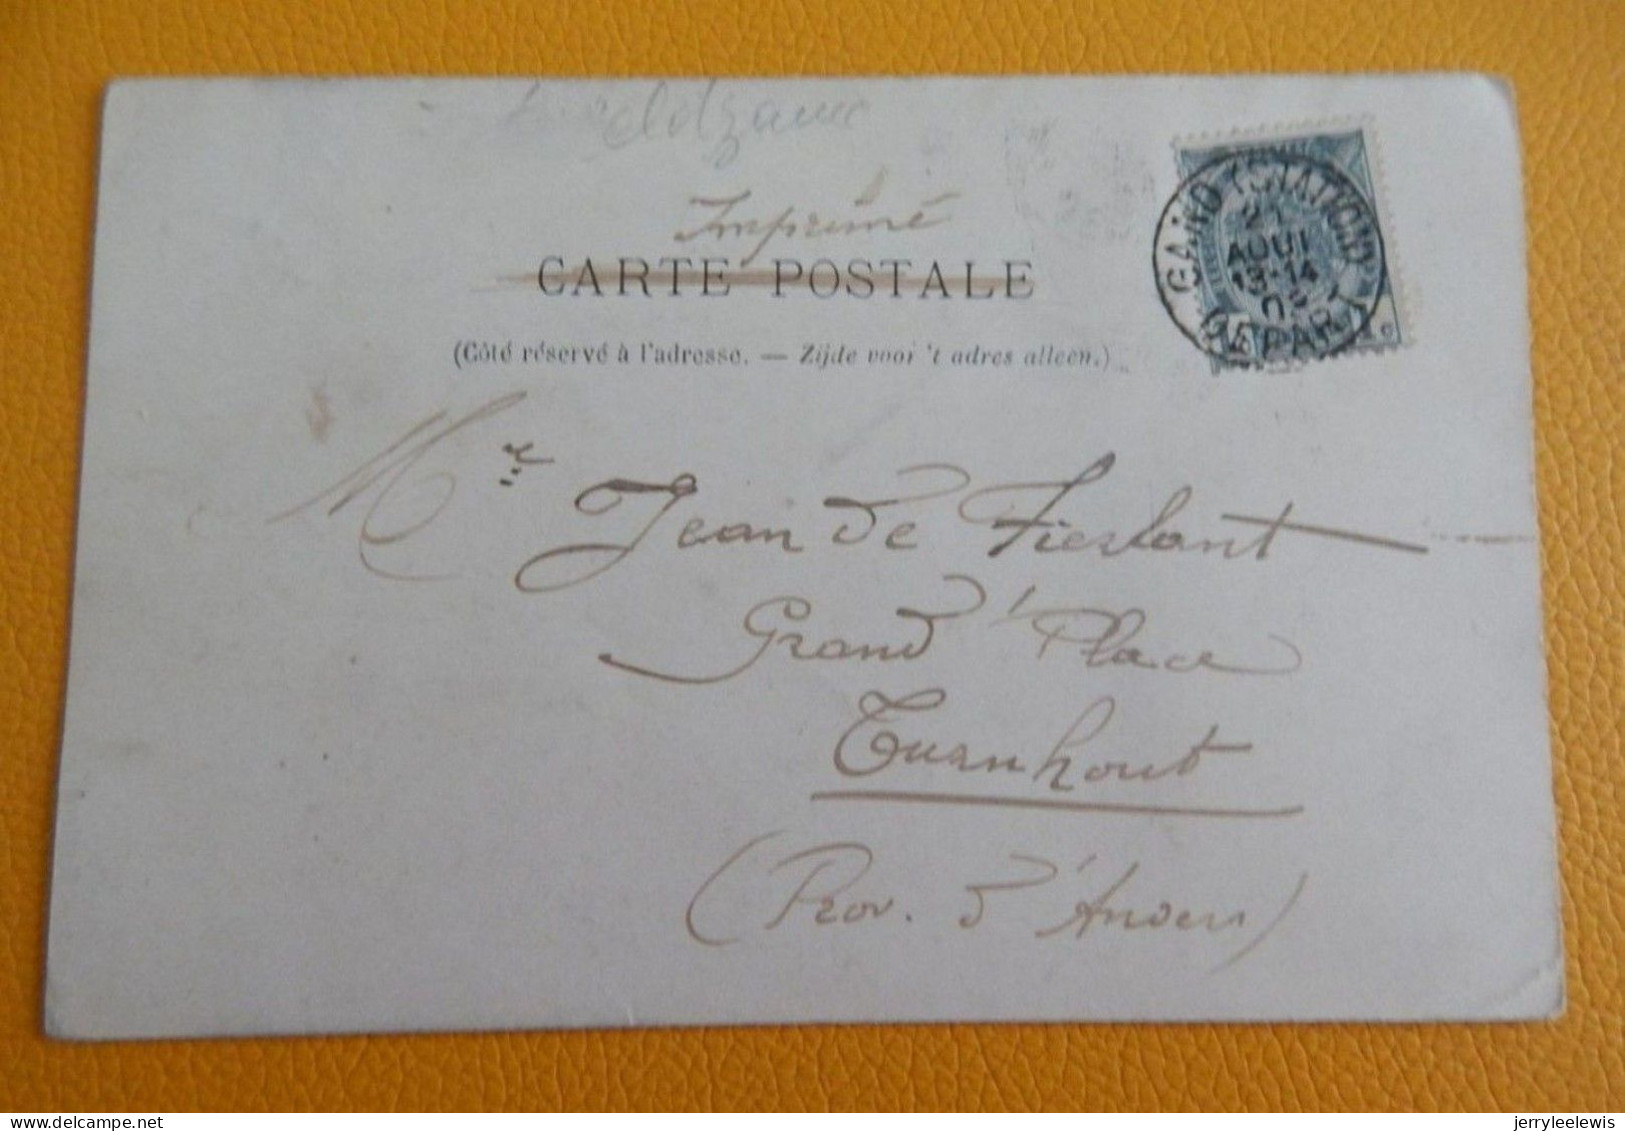 Imprimé
CARTE POSTALE
(Côté réservé à l'adresse. — Zijde voor 't adres alleen.)
GAND (STATION)
21
AOUT
13-14
DEPART
Mr Jean de Fierlant
Grand' Place
Turnhout
(Prov. d'Anvers)
jerryleelewis